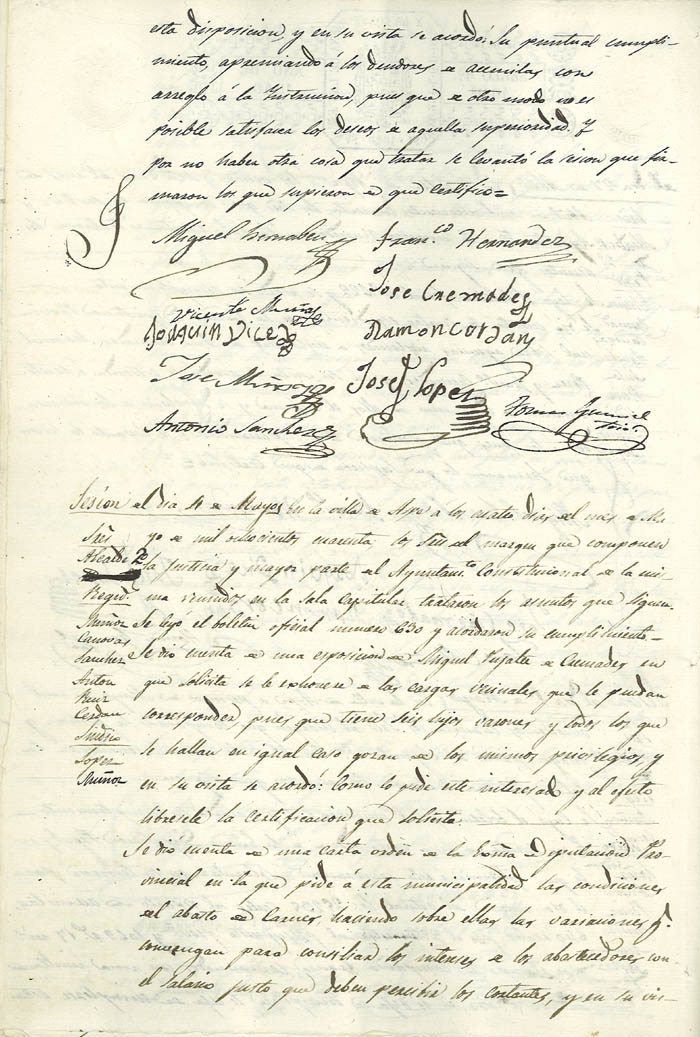 esta disposicion, y en su vista se acordó: Su puntual cumpli-
miento, apremiando á los deudores de acemilas con
arreglo á la Instruccion, pues que de otro modo no es
posible satisfacer los deseos de aquella superioridad. Y
por no haber otra cosa que tratar se levantó la sesion que fir-
maron los que supieron de que certifico=
Miguel Fran.co Hernandez
Jose Cremades
Vicente Muñoz
Joaquin Ramon Cerdan
Jose Muñoz Josef Lopez
Antonio Sanchez Tomas
Sesion del dia 4 de Mayo
En la villa de Aspe a los cuatro dias del mes de Ma-
yo de mil ochocientos cuarenta los Sres del margen que componen
la Justicia y mayor parte del Ayuntam.to Constitucional de la mis-
ma reunidos en la sala Capitular, trataron los asuntos que siguen.
Se leyo el boletin oficial numero 630 y acordaron su cumplimiento
Se dio cuenta de una esposicion de Miguel Pujalte de Cremades en
que solicita se le exhonere de las cargas vecinales que le puedan
corresponder pues que tiene seis hijos varones y todos los que
se hallan en igual caso gozan de los mismos privilegios, y
en su vista se acordó: Como lo pide este interesado y al efecto
libresele la certificacion que solicita.
Se dio cuenta de una carta orden de la Exma Diputacion Pro-
vincial en la que pide á esta municipalidad las condiciones
del abasto de Carnes, haciendo sobre ellas las variaciones q.e
convengan para conciliar los intereses de los abastecedores con
el salario justo que deben percibir los cortantes, y en su vis-
Sres
Alcalde 2º
Regid.s
Muñoz
Canovas
Sanchez
Anton
Ruiz
Cerdan
Sindico
Lopez
Muñoz